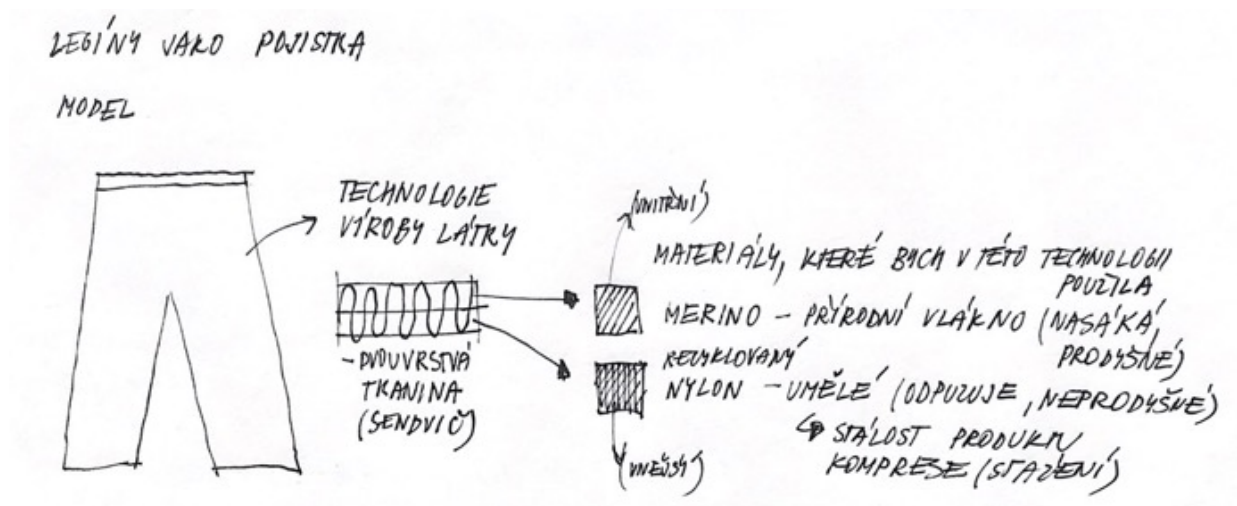 LEGÍNY JAKO POJISTKA
MODEL
TECHNOLOGIE
VÝROBY LÁTKY
- DVOUVRSTVÁ
TKANINA
(SENDVIČ)
(VNITŘNÍ)
MATERIÁLY, KTERÉ BYCH V TÉTO TECHNOLOGII
POUŽILA
MERINO - PŘÍRODNÍ VLÁKNO (NASÁKÁ,
PRODYŠNÉ)
RECYKLOVANÝ
NYLON - UMĚLÉ (ODPUZUJE, NEPRODYŠNÉ)
↳ STÁLOST PRODUKTU
KOMPRESE (STAŽENÍ)
(VNĚJŠÍ)